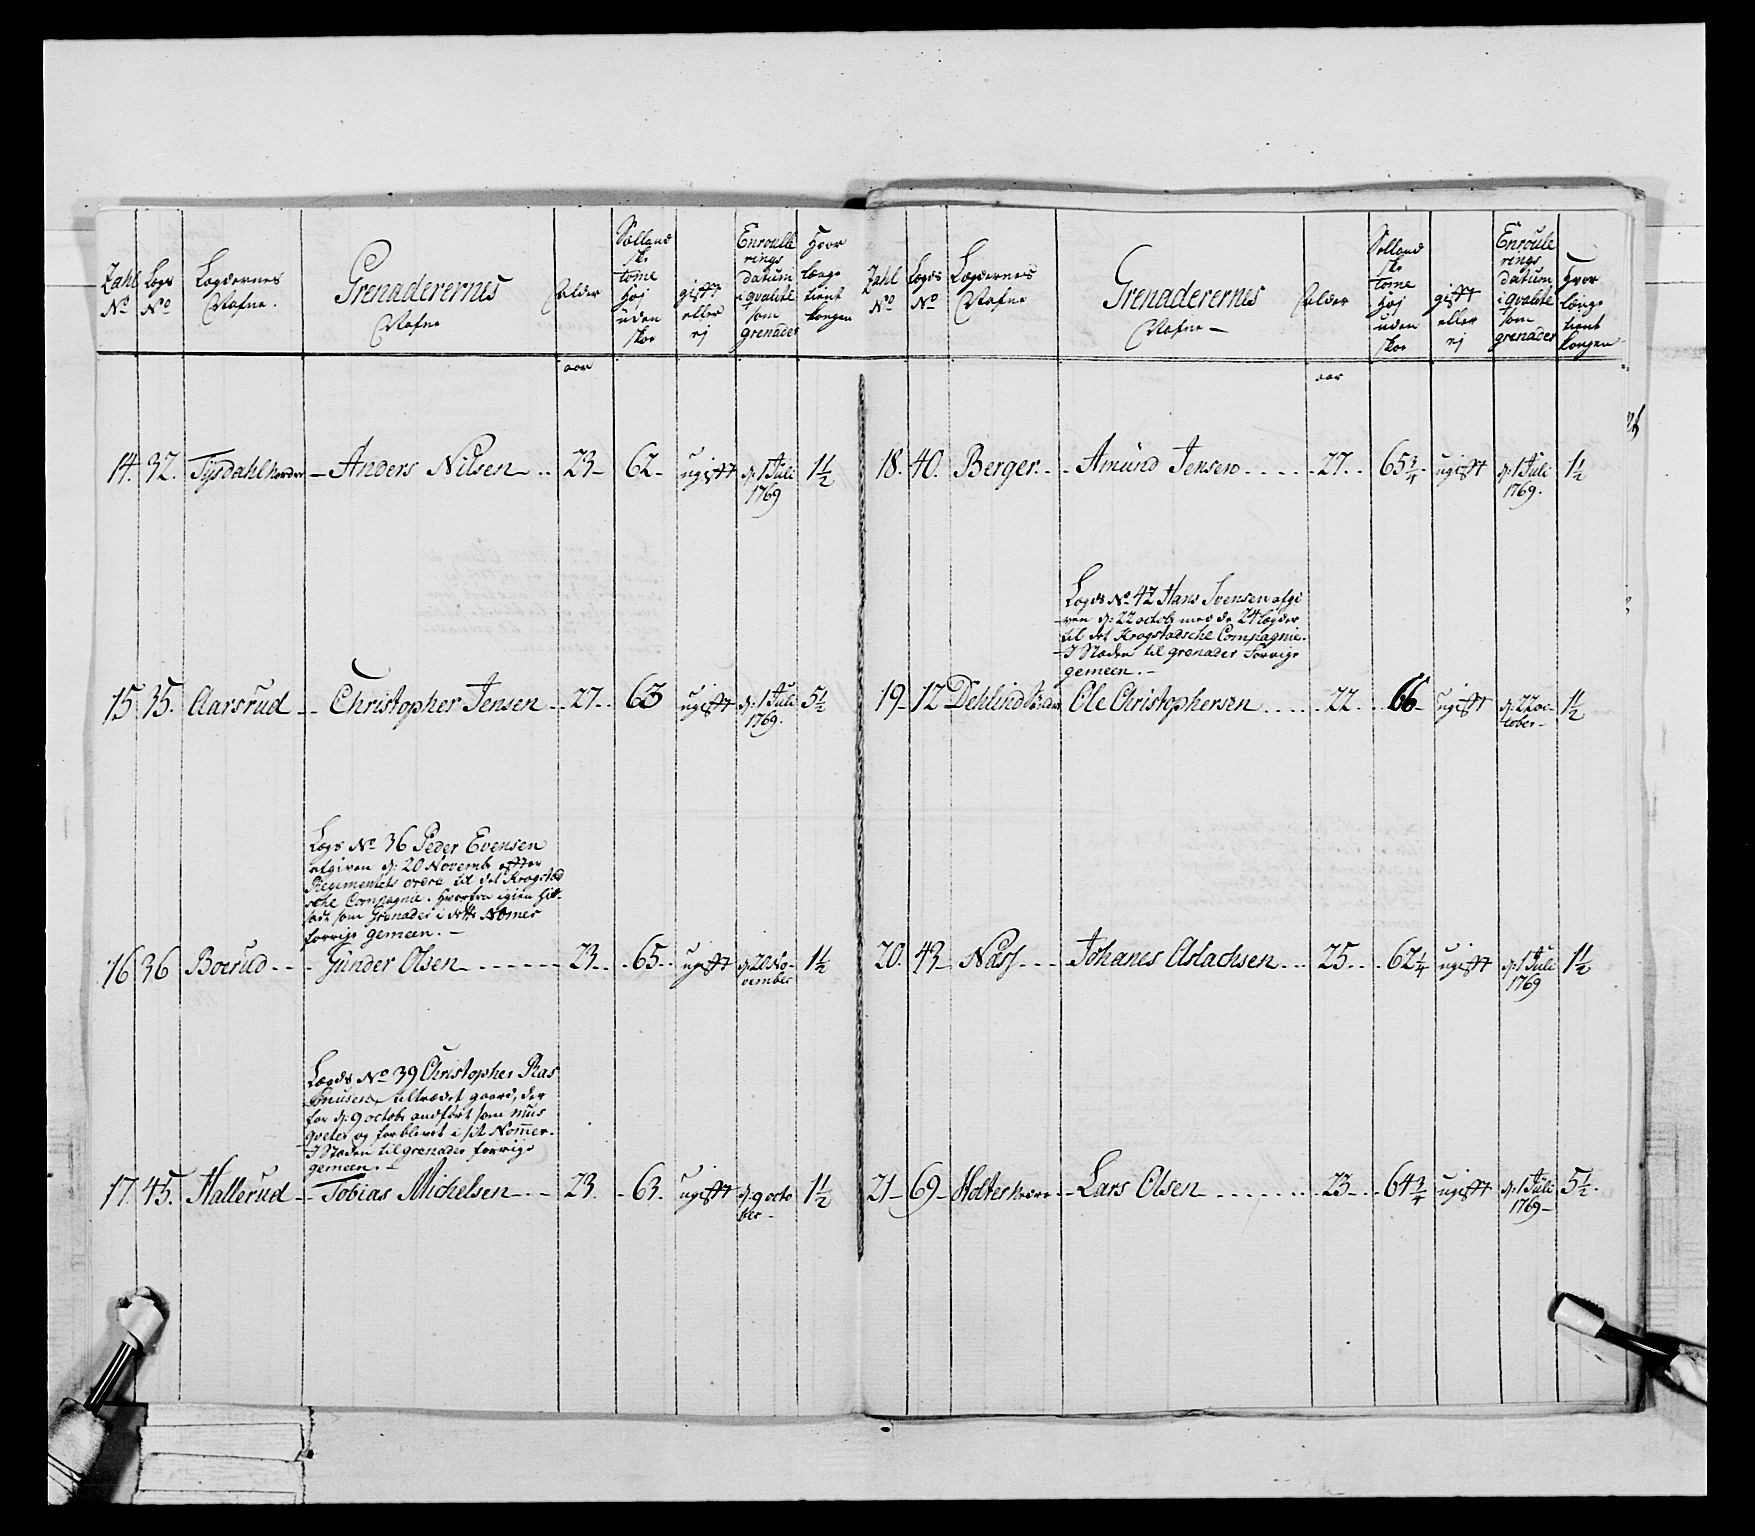 Zahl No
Lægs No
Lægdernes Nafne.
Grenaderernes Nafne
Alder
Sællandske tome høj uden skoe
gifft eller ej
Enroullerings datum i qvalité som grenader
Hvor længe tient kongen
aar
14. 32. Tysdahl Nordre – Anders Nilsen – .. 23 – 62 – ugifft d: 1 Juli 1769 1½
15 35. Aarsrud – – Christopher Jensen – – 27 – . 63 ugifft d: 1 Juli 1769. 5½
Lægs No 36 Peder Evensen
afgiven d: 20 Novemb. efter
Regimentets ordre til det Krogstad
sche Compagnie. Hvorfra igien hid-
sadt som Grenader i dette Nomer
forrige gemeen. –
16 36 Boerud - - - Gunder Olsen - - - - - - 23 - . . 65 - . ugifft d: 20 No-vember 1½
Lægds No 39 Christopher Ras
musen, tiltrædet gaard, der
for d: 9 octobr anført som mus
qveter og forblevet i sit Nommer.
I Stæden til grenader forrige
gemeen. –
17 45. Hallerud – – Tobias Michelsen - . - 23. . 63. ugifft d: 9 octo ber – 1½
Zahl No
Lægds No
Lægdernes Nafne
Grenaderernes Nafne –
Alder
Sællandske tome høj uden skoe
gifft eller ej
Enroulerings datum i qvalité som grenader
Hvor længe tient kongen
aar
18. 40. Berger. - . Amund Jensen . - . - . . 27. . 65¾ - ugifft d: 1 Juli 1769. 1½
Lægds No. 42 Hans Svensen afgi
ven d: 22 octob med de 24 lægder
til det Krogstadsche Compagnie.
I Stæden til grenader forrige
gemeen. –
19 – 12 Dehlind Ole Christophersen . . . . . 22. . . 66 – ugifft d: 22 oc-tober – 1½
20. 43 – Næss - . - Johanes Aslachsen . . . 25. . . 62¼ ugifft d: 1 Juli 1769 1½
21 – 69 – Holter - . Lars Olsen . . . . . . . 23 - . . 64¾ ugifft d: 1 Juli 1769 – 5½.